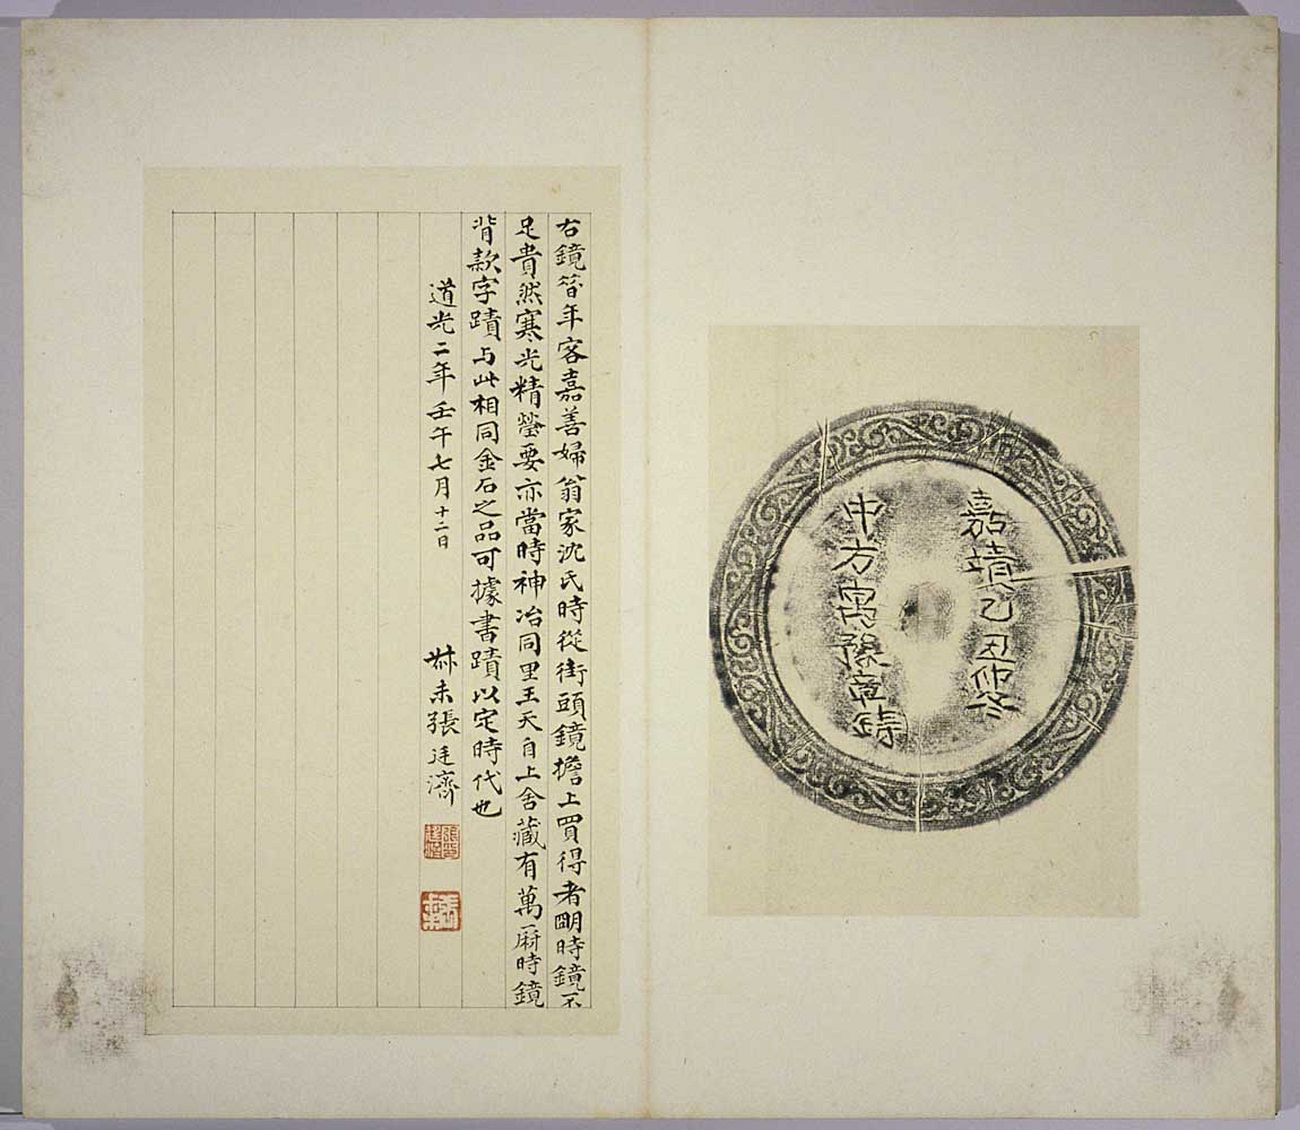 嘉靖乙丑仲冬
中方寓豫章鑄
右鏡㫺年客嘉善婦翁家沈氏時從街頭鏡擔上買得者朙時鏡不
足貴然寒光精瑩要亦當時神冶同里王天自上舍藏有萬厤時鏡
背款字蹟与此相同金石之品可據書蹟以定時代也
道光二年壬午七月十二日 叔未張廷濟
張廷濟印
張叔未